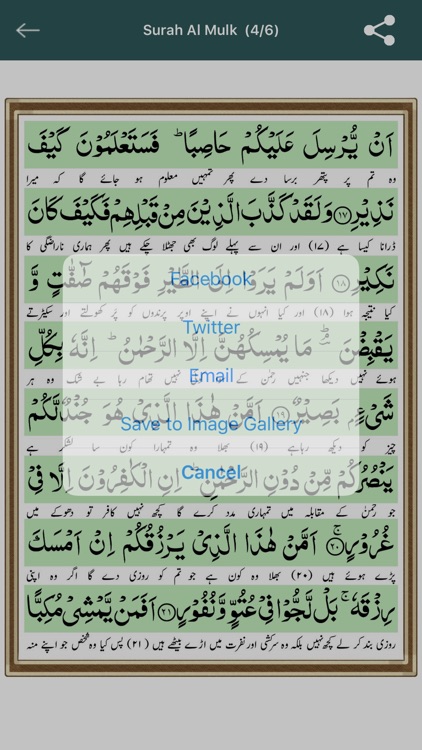 Surah Al Mulk (4/6)
اَنْ يُّرْسِلَ عَلَيْكُمْ حَاصِبًا ؕ فَسَتَعْلَمُوْنَ كَيْفَ
وہ تم پر پتھر برسا دے پھر تمہیں معلوم ہو جائے گا کہ میرا
نَذِيْرِ ۝۱۷ وَلَقَدْ كَذَّبَ الَّذِيْنَ مِنْ قَبْلِهِمْ فَكَيْفَ كَانَ
ڈرانا کیسا ہے (۱۷) اور ان سے پہلے لوگ بھی جھٹلا چکے ہیں پھر ہماری ناراضگی کا
نَكِيْرِ ۝۱۸ اَوَلَمْ يَرَوْا اِلَى الطَّيْرِ فَوْقَهُمْ صٰٓفّٰتٍ وَّ
Facebook
کیا نتیجہ ہوا (۱۸) اور کیا انہوں نے اپنے اوپر پرندوں کو پر کھولتے اور سکیڑتے
يَقْبِضْنَ ۘؕ مَا يُمْسِكُهُنَّ اِلَّا الرَّحْمٰنُ ؕ اِنَّهٗ بِكُلِّ
Twitter
ہوئے نہیں دیکھا جنہیں رحمٰن کے نہیں تھام رہا بے شک وہ ہر
Email
شَیْءٍۭ بَصِيْرٌ ۝۱۹ اَمَّنْ هٰذَا الَّذِیْ هُوَ جُنْدٌ لَّكُمْ
Save to Image Gallery
چیز کو دیکھ رہا ہے (۱۹) بھلا وہ تمہارا کون سا لشکر ہے
يَنْصُرُكُمْ مِّنْ دُوْنِ الرَّحْمٰنِ ؕ اِنِ الْكٰفِرُوْنَ اِلَّا فِیْ
Cancel
جو رحمٰن کے مقابلہ میں تمہاری مدد کرے گا کچھ نہیں کافر تو دھوکے میں
غُرُوْرٍ ۝۲۰ۚ اَمَّنْ هٰذَا الَّذِیْ يَرْزُقُكُمْ اِنْ اَمْسَكَ
پڑے ہوئے ہیں (۲۰) بھلا وہ کون ہے جو تم کو روزی دے گا اگر وہ اپنی
رِزْقَهٗ ۚ بَلْ لَّجُّوْا فِیْ عُتُوٍّ وَّنُفُوْرٍ ۝۲۱ اَفَمَنْ يَّمْشِیْ مُكِبًّا
روزی بند کر لے کچھ نہیں بلکہ وہ سرکشی اور نفرت میں اڑے بیٹھے ہیں (۲۱) پس کیا وہ شخص جو اپنے منہ